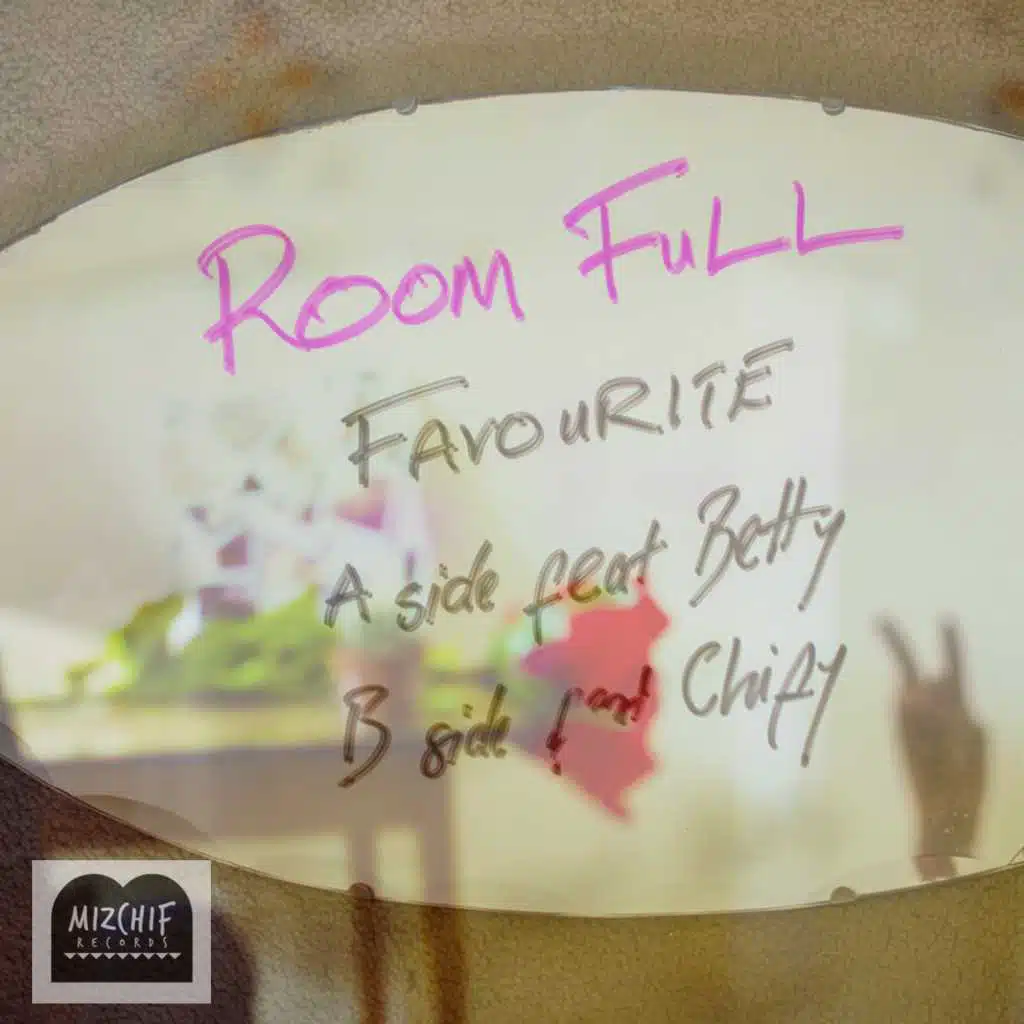 ROOM FuLL
FAVOuRITE
A side feat Betty
B side feat Chify
MIZCHIF
RECORDS